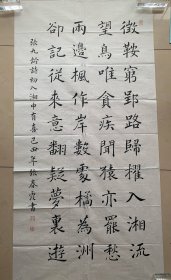 徵鞍窮郢路歸櫂入湘流
望鳥唯貪疾聞猿亦罷愁
兩邊楓作岸數處橘為洲
卻記從來意翻疑夢裏遊
張九齡詩初入湘中有喜己丑年春霞書